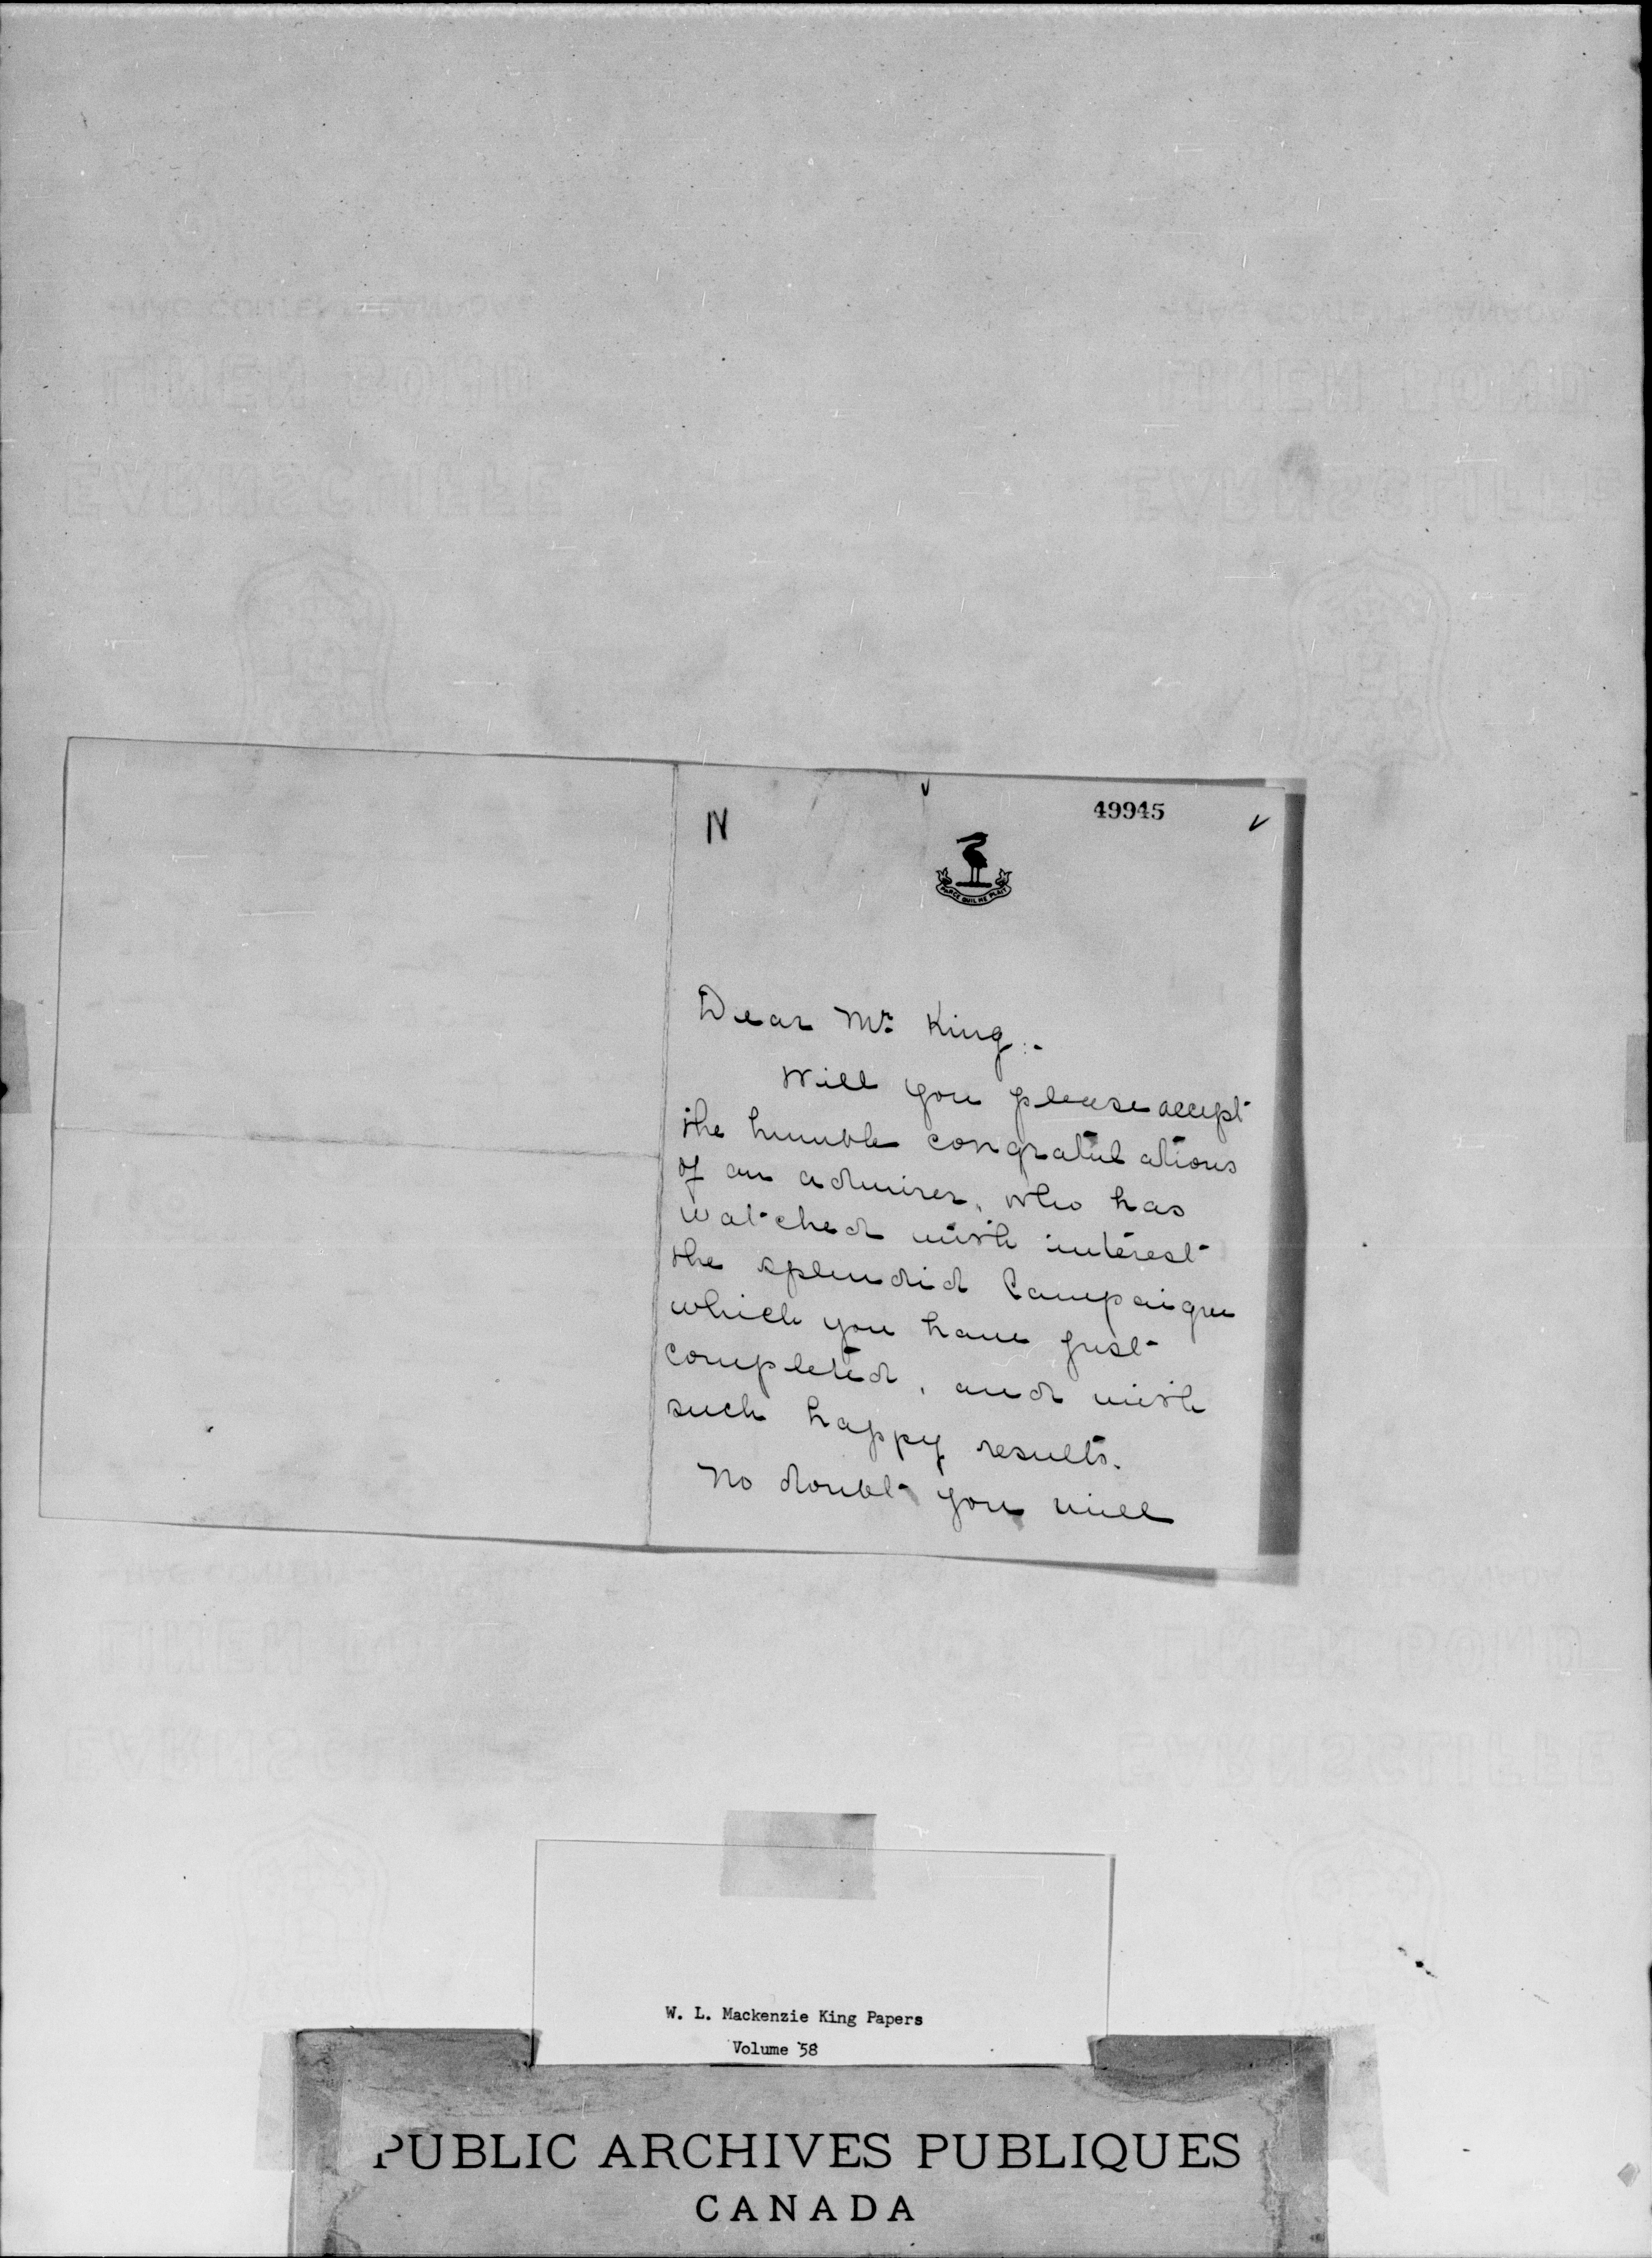 N
49945
PARCE QUIL ME PLAIT
Dear Mr. King:-
Will you please accept
the humble congratulations
of an admirer, who has
watched with interest
the splendid Campaign
which you have just
completed, and with
such happy results.
No doubt you will
W. L. Mackenzie King Papers
Volume 58
PUBLIC ARCHIVES PUBLIQUES
CANADA